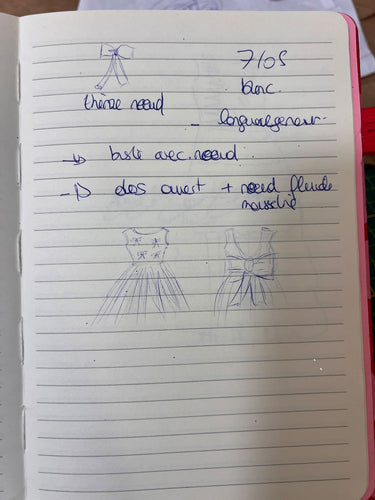 7/05
thème noeud
blanc
- longueur genoux
→ buste avec noeud
→ dos ouvert + noeud